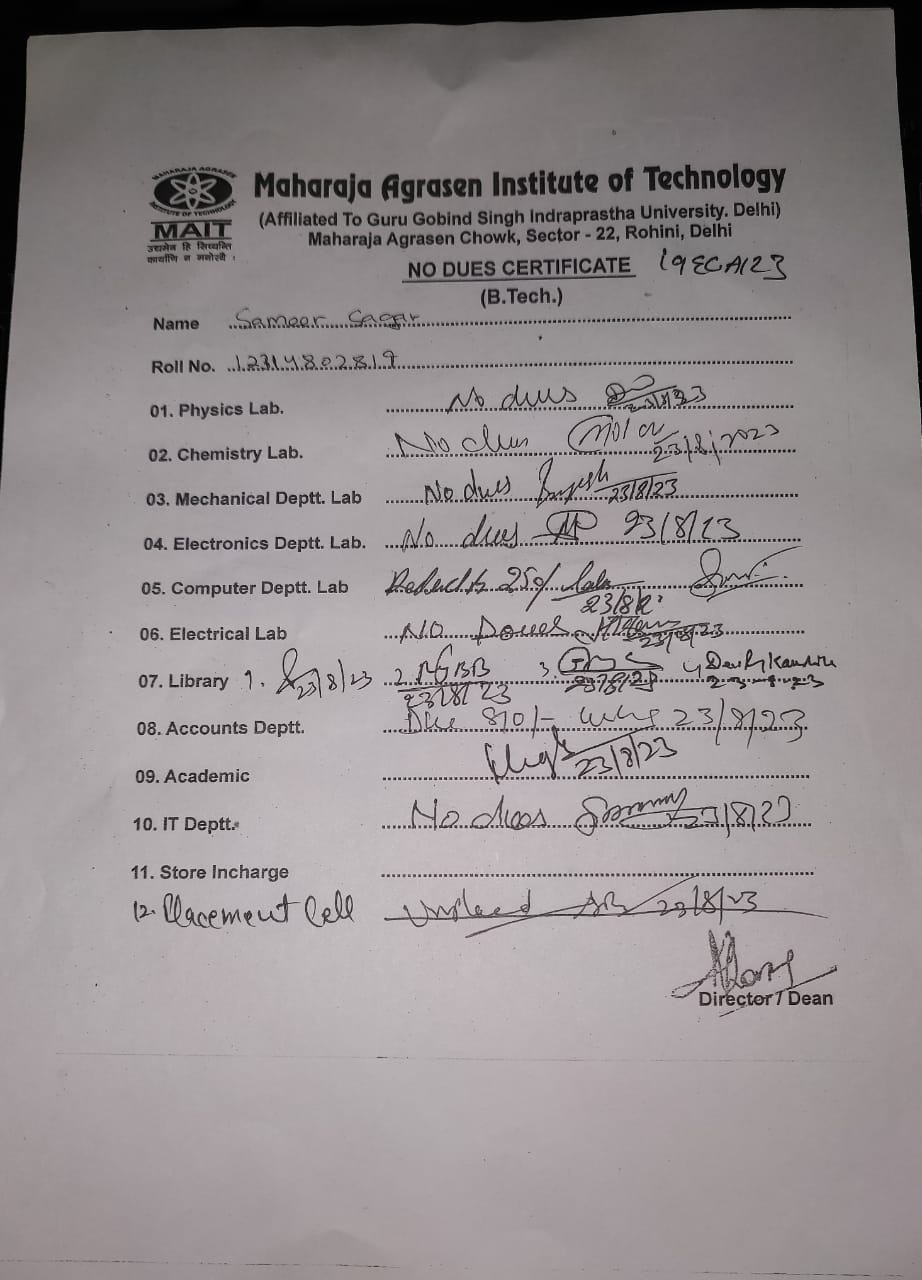 MAHARAJA AGRASEN
INSTITUTE OF TECHNOLOGY
MAIT
उद्यमेन हि सिध्यन्ति
कार्याणि न मनोरथैः
Maharaja Agrasen Institute of Technology
(Affiliated To Guru Gobind Singh Indraprastha University. Delhi)
Maharaja Agrasen Chowk, Sector - 22, Rohini, Delhi
NO DUES CERTIFICATE 19ECA123
(B.Tech.)
Name Sameer Sagar
Roll No. 12314802819
01. Physics Lab. No dues 23/8/23
02. Chemistry Lab. No dues 23/8/2023
03. Mechanical Deptt. Lab No dues 23/8/23
04. Electronics Deptt. Lab. No dues 23/8/23
05. Computer Deptt. Lab 23/8/2
06. Electrical Lab No Doues 23/8/23
07. Library 1. 23/8/23 2. 23/8/23 3. 23/8/23 4
08. Accounts Deptt. Due 810/- 23/8/23
09. Academic 23/8/23
10. IT Deptt. No dues 23/8/23
11. Store Incharge
12. Placement Cell Unplaced 23/8/23
Director / Dean